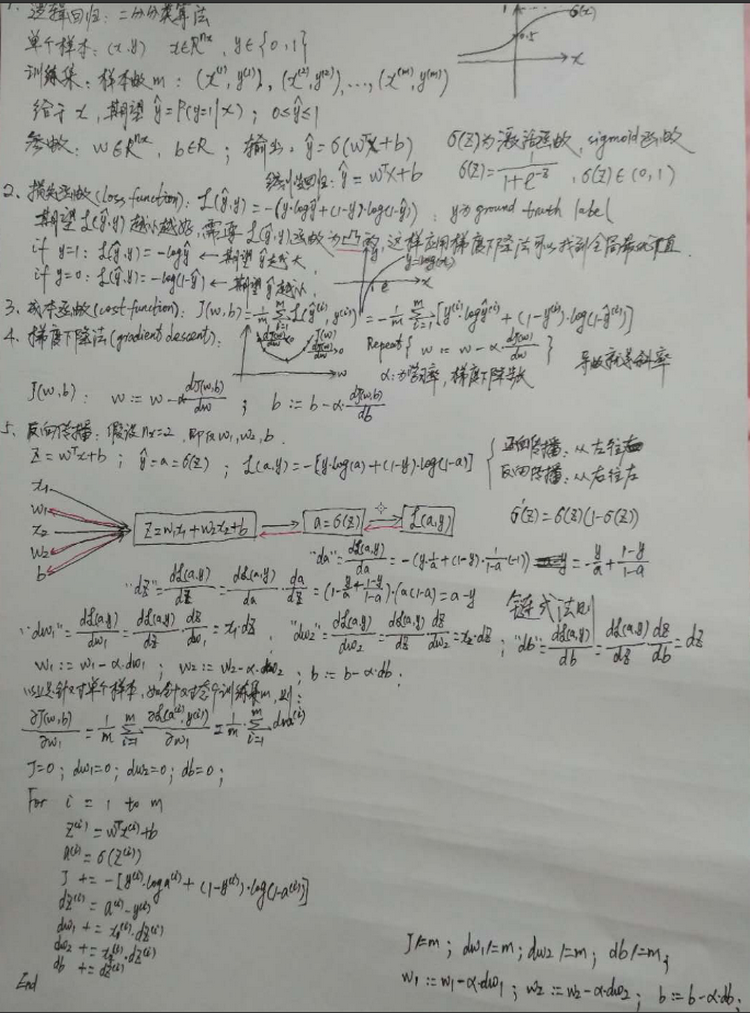 1. 逻辑回归：二分分类算法
σ(z)
0.5
x
单个样本：(x,y) x∈R^{nx}, y∈{0,1}
训练集：样本数m：(x^{(1)},y^{(1)}), (x^{(2)},y^{(2)}), ..., (x^{(m)},y^{(m)})
给予 x, 期望 ŷ=P(y=1|x)；0≤ŷ≤1
参数：w∈R^{nx}, b∈R；输出：ŷ=σ(w^Tx+b) σ(z)为激活函数, sigmoid函数
线性回归：ŷ=w^Tx+b σ(z)=1/(1+e^{-z}), σ(z)∈(0,1)
2. 损失函数(loss function)：L(ŷ,y)=-(y·logŷ+(1-y)·log(1-ŷ))；y为ground truth label
期望L(ŷ,y)越小越好, 需要L(ŷ,y)函数为凸的, 这样应用梯度下降法可以找到全局最优值
if y=1：L(ŷ,y)=-logŷ ← 期望ŷ越大,
y=log(x)
if y=0：L(ŷ,y)=-log(1-ŷ) ← 期望ŷ越小,
e
x
3. 成本函数(cost function)：J(w,b)=1/m Σ_{i=1}^{m} L(ŷ^{(i)},y^{(i)})=-1/m Σ_{i=1}^{m}[y^{(i)}·logŷ^{(i)}+(1-y^{(i)})·log(1-ŷ^{(i)})]
4. 梯度下降法(gradient descent)：
dJ(w)/dw<0 J(w) dJ(w)/dw>0
w
Repeat{ w=w-α·dJ(w)/dw } 导数就是斜率
α：为学习率, 梯度下降步长
J(w,b)：w:=w-α·dJ(w,b)/dw；b:=b-α·dJ(w,b)/db
5. 反向传播：假设nx=2, 即有w₁,w₂,b.
z=w^Tx+b；ŷ=a=σ(z)；L(a,y)=-[y·log(a)+(1-y)·log(1-a)]
正向传播：从左往右
反向传播：从右往左
x₁
w₁
x₂
w₂
b
z=w₁x₁+w₂x₂+b
a=σ(z)
L(a,y)
σ'(z)=σ(z)(1-σ(z))
"da"=dL(a,y)/da=-(y·1/a+(1-y)·1/(1-a)·(-1))=-y/a+(1-y)/(1-a)
"dz"=dL(a,y)/dz=dL(a,y)/da·da/dz=(-y/a+(1-y)/(1-a))·(a(1-a))=a-y
链式法则
"dw₁"=dL(a,y)/dw₁=dL(a,y)/dz·dz/dw₁=x₁·dz, "dw₂"=dL(a,y)/dw₂=dL(a,y)/dz·dz/dw₂=x₂·dz；"db"=dL(a,y)/db=dL(a,y)/dz·dz/db=dz
w₁:=w₁-α·dw₁；w₂:=w₂-α·dw₂；b:=b-α·db；
以上是针对单个样本, 如针对整个训练集m, 则：
∂J(w,b)/∂w₁=1/m Σ_{i=1}^{m} ∂L(a^{(i)},y^{(i)})/∂w₁=1/m·Σ_{i=1}^{m}dw₁^{(i)}
J=0；dw₁=0；dw₂=0；db=0；
For i = 1 to m
z^{(i)}=w^Tx^{(i)}+b
a^{(i)}=σ(z^{(i)})
J += -[y^{(i)}·loga^{(i)}+(1-y^{(i)})·log(1-a^{(i)})]
dz^{(i)}=a^{(i)}-y^{(i)}
dw₁ += x₁^{(i)}·dz^{(i)}
dw₂ += x₂^{(i)}·dz^{(i)}
db += dz^{(i)}
End
J/=m；dw₁/=m；dw₂/=m；db/=m；
w₁:=w₁-α·dw₁；w₂:=w₂-α·dw₂；b:=b-α·db；